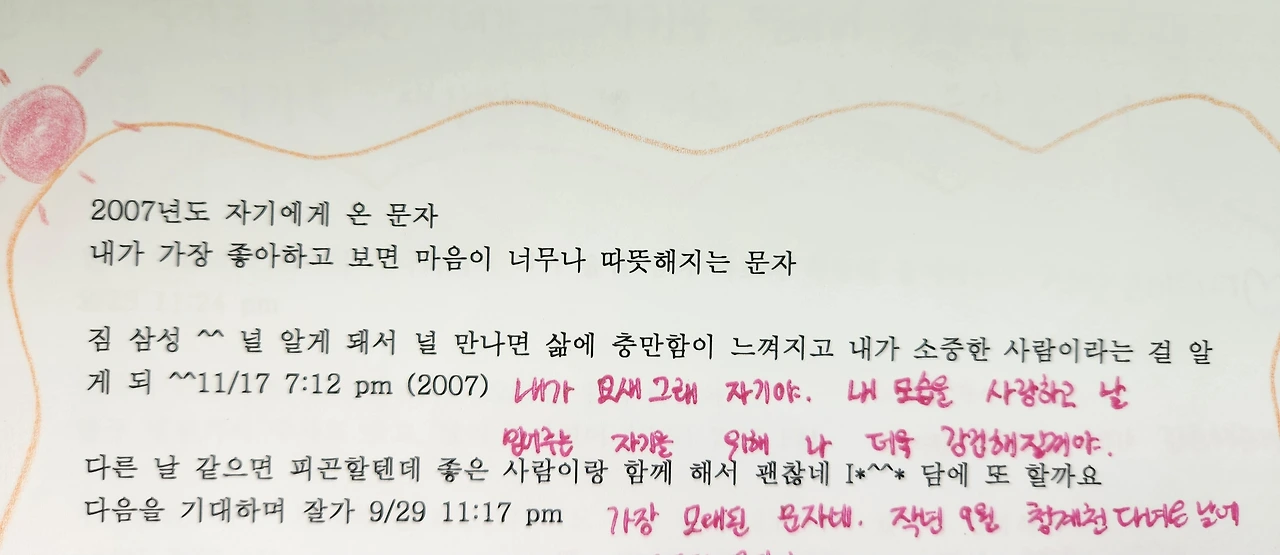 2007년도 자기에게 온 문자
내가 가장 좋아하고 보면 마음이 너무나 따뜻해지는 문자
짐 삼성 ^^ 널 알게 돼서 널 만나면 삶에 충만함이 느껴지고 내가 소중한 사람이라는 걸 알
게 되 ^^11/17 7:12 pm (2007) 내가 요새 그래 자기야. 내 모습을 사랑하고 날
믿어주는 자기을 위해 나 더욱 강건해질게야.
다른 날 같으면 피곤할텐데 좋은 사람이랑 함께 해서 괜찮네 I*^^* 담에 또 할까요
다음을 기대하며 잘가 9/29 11:17 pm 가장 오래된 문자네. 작년 9월 청계천 다녀온 날에